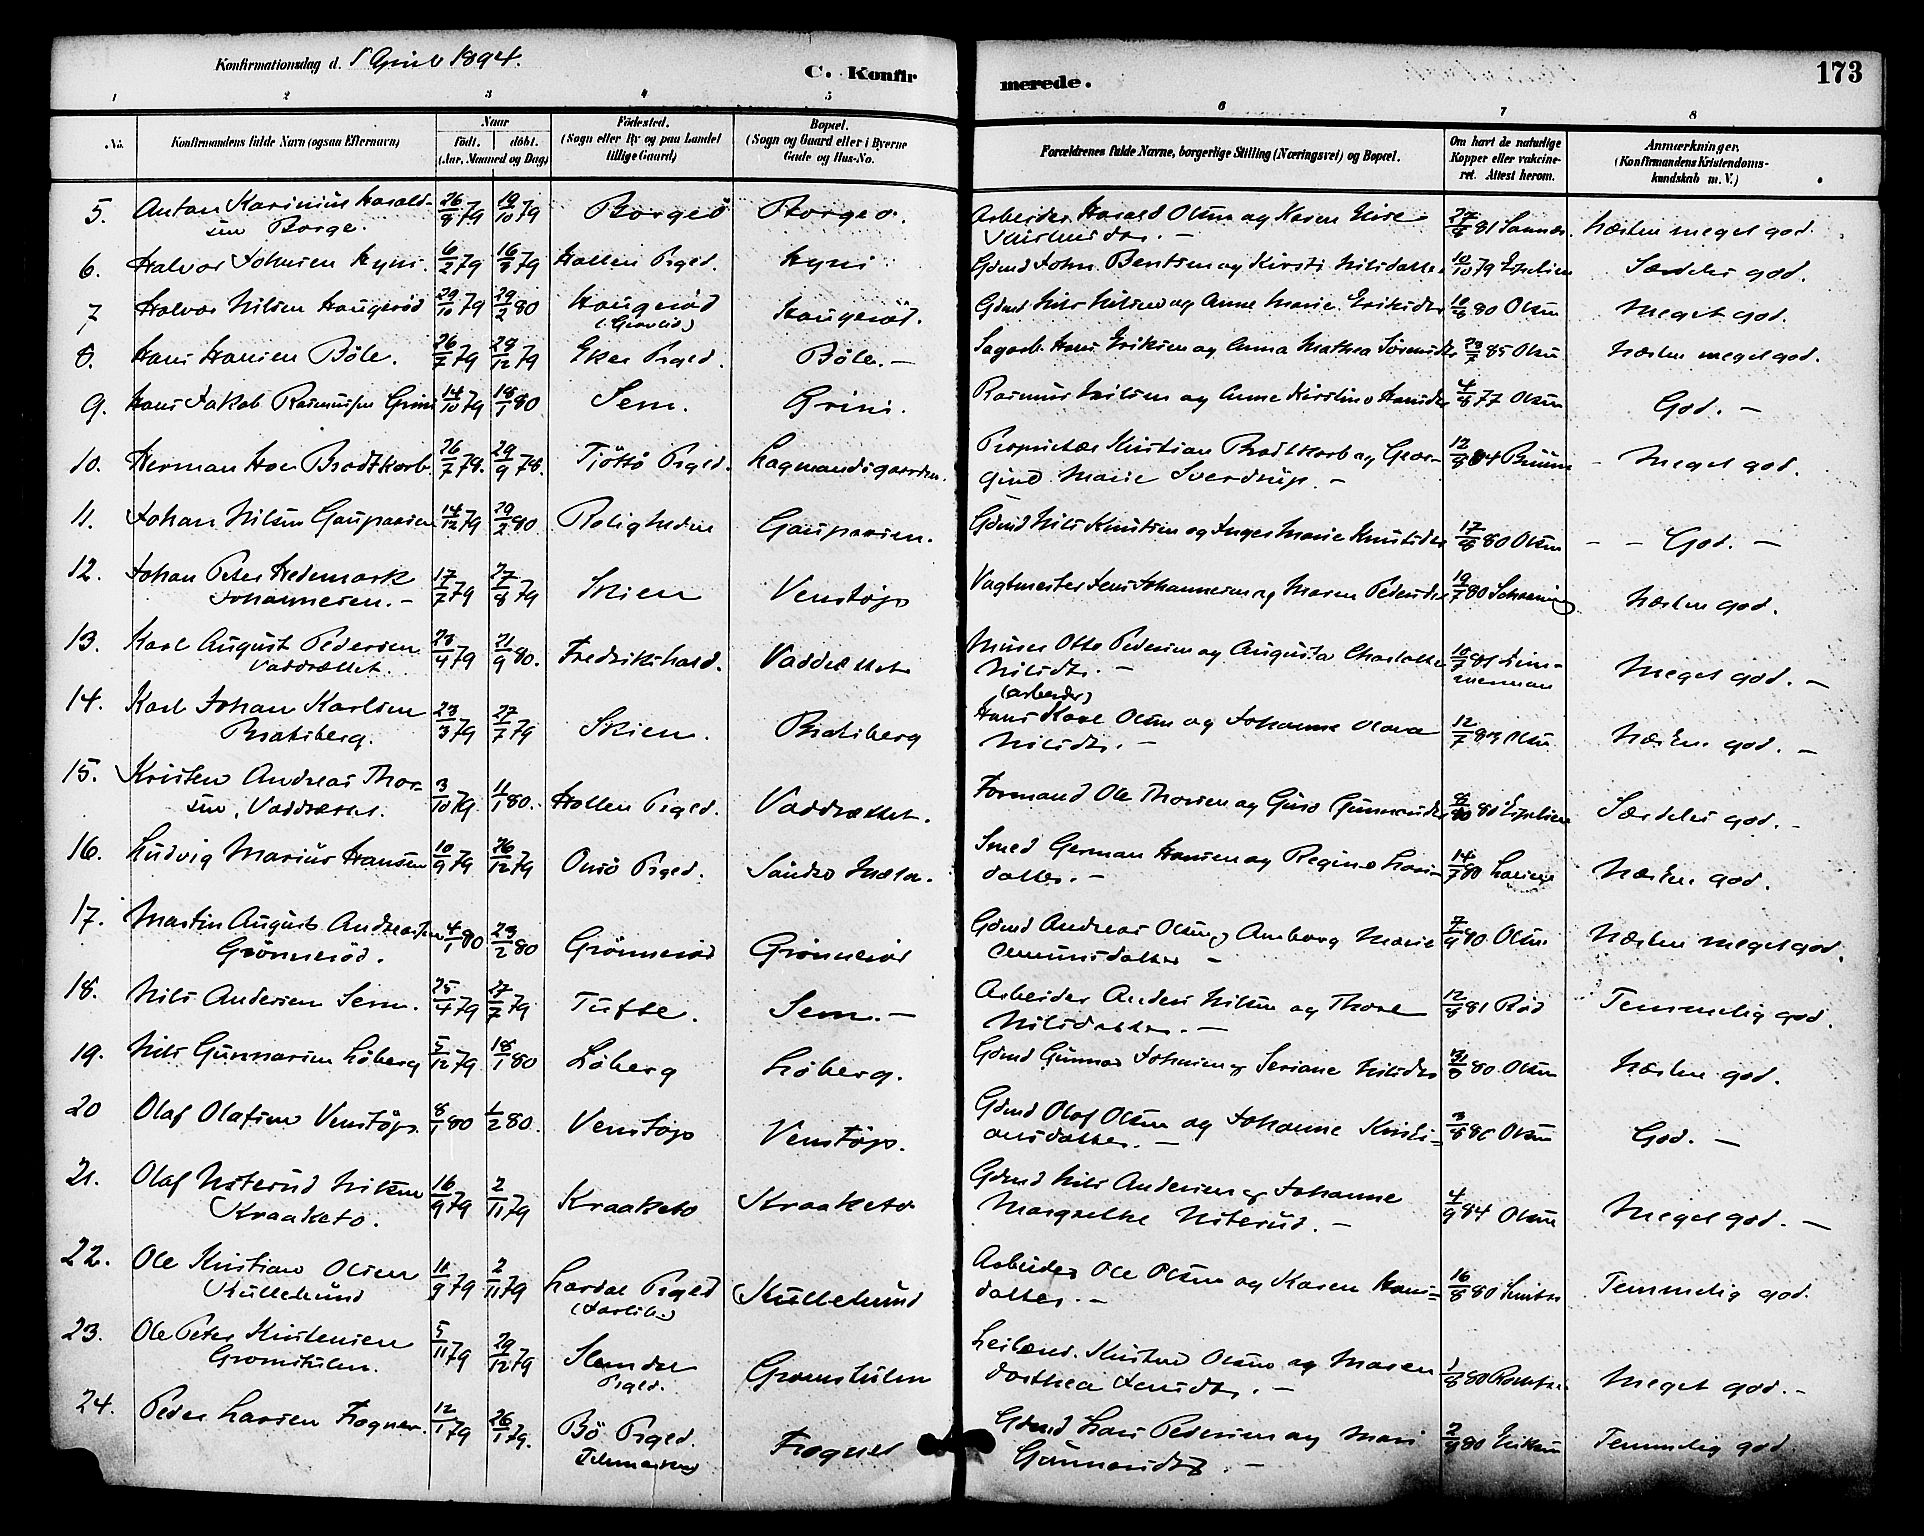 Konfirmationsdag d. 1 April 1894.
C. Konfirmerede.
173
1 2 3 4 5 6 7 8
No. Konfirmandens fulde Navn (ogsaa Efternavn) Naar födt. döbt. (Aar, Maaned og Dag) Födested. (Sogn eller By og paa Landet tillige Gaard) Bopæl. (Sogn og Gaard eller i Byerne Gade og Hus-No. Forældrenes fulde Navne, borgerlige Stilling (Næringsvei) og Bopæl. Om havt de naturlige Kopper eller vakcineret. Attest herom. Anmærkninger. (Konfirmandens Kristendomskundskab m. V.)
5. Anton Karinius Haraldsen Borge. 26/9 79 19/10 79 Borge Borge. Arbeider Harald Olsen og Karen 27/8 81 Næsten meget god.
6. Halvor Johnsen Kyni. 6/2 79 16/3 79 Hollen Prgld. Kyni Gdmd John Bentsen og Kirsti Nilsdatter 10/10 79 Særdeles god.
7 Halvor Nilsen Haugerød 29/10 79 29/2 80 Haugerød (Gravlid) Haugerød. Gdmd Nils Nilsen og Anne Marie Eriksdtr 10/8 80 Olsen Meget god.
8. Hans Hansen Böle. 26/7 79 29/12 79 Eker Prgld. Böle. – Sagarb. Hans Eriksen og Anna Mathea Sörensdtr 23/7 85 Olsen Næsten meget god.
9. Hans Jakob Rasmussen Grini 14/10 79 18/1 80 Sem. Grini. Rasmus Nilsen og Anne Kirstine Hansdtr 4/8 77 Olsen God. –
10. Herman Hoe Brodtkorb. 26/7 78. 29/9 78. Tjöttö Prgld. Lagmandsgaarden. Proprietær Kristian Brodtkorb og Georgine Marie Sverdrup. – 12/9 84 – Meget god.
11. Johan Nilsen Gaupaasen 14/12 79 29/2 80 Roligheden Gaupaasen. Gdmd Nils Knutsen og Inger Marie Knutsdtr 17/8 80 Olsen – – God. –
12. Johan Peter Hedemark Johannesen. – 17/7 79 27/8 79 Skien Venstöp Vagtmester Jens Johannesen og Maren Pedersdtr 19/7 80 Næsten god.
13. Karl August Pedersen Vaddrættet. 23/4 79 21/9 80. Fredrikshald. Vaddrættet Murer Otto Pedersen og Augusta Charlotte Nilsdtr. – Meget god. –
14. Karl Johan Karlsen Bratsberg. 23/3 79 27/7 79 Skien. Bratsberg (arbeider) Hans Karl Olsen og Johanne Olava Nilsdtr. – 12/7 Olsen Næsten god. –
15. Kristen Andreas Thorsen, Vaddrættet. 3/10 79. 11/1 80. Hollen Prgld. Vaddrættet. Formand Ole Thorsen og Guro Gunnarsdtr Særdeles god. –
16. Ludvig Marius Hansen 10/9 79 26/12 79 Onsö Prgld. Söndre Mæla. Smed German Hansen og Regine Larsdatter. – 14/7 80 Næsten god.
17. Martin August Andreassen Grönneröd. 4/1 80 23/2 80 Grönneröd Grönneröd Gdmd Andreas Olsen og Anborg Marie Amundsdatter – 7/9 90 Olsen Næsten meget god.
18. Nils Andersen Sem. 25/4 79 27/7 79 Tufte. Sem. – Arbeider Anders Nilsen og Thore Nilsdatter. – 12/8 81 Röd Temmelig god.
19. Nils Gunnarsen Löberg 5/12 79 18/1 80 Löberg Löberg. Gdmd Gunnar Johnsen og Seriane Nilsdtr 80 Olsen Næsten god.
20 Olaf Olafsen Venstöp. 8/1 80 1/2 80. Venstöp Venstöp. Gdmd Olaf Olsen og Johanne Kristiansdatter. – 3/8 86 Olsen God. –
21. Olaf Usterud Nilsen Kraaketo. 16/9 79 2/11 79 Kraaketo Kraaketo Gdmd Nils Andersen og Johanne Margrethe Usterud. – 4/9 84 Olsen Meget god. –
22. Ole Kristian Olsen Kullehund 11/9 79 2/11 79 Lardal Prgld Kullehund Arbeider Ole Olsen og Karen Hansdatter. – 16/8 80 Temmelig god.
23. Ole Peter Kristensen Gromstulen. 5/11 79 29/12 79 Slemdal Prgld. Gromstulen Leilænd. Kristen Olsen og Maren Dorthea Jensdtr. – 1/8 80 Meget god. –
24. Peder Larsen Frogner. 12/1 79 26/1 79. Bö Prgld. Telemarken Frogner Gdmd Lars Pedersen og Mari Gunnarsdtr. – 2/9 80 Eriksen Temmelig god.